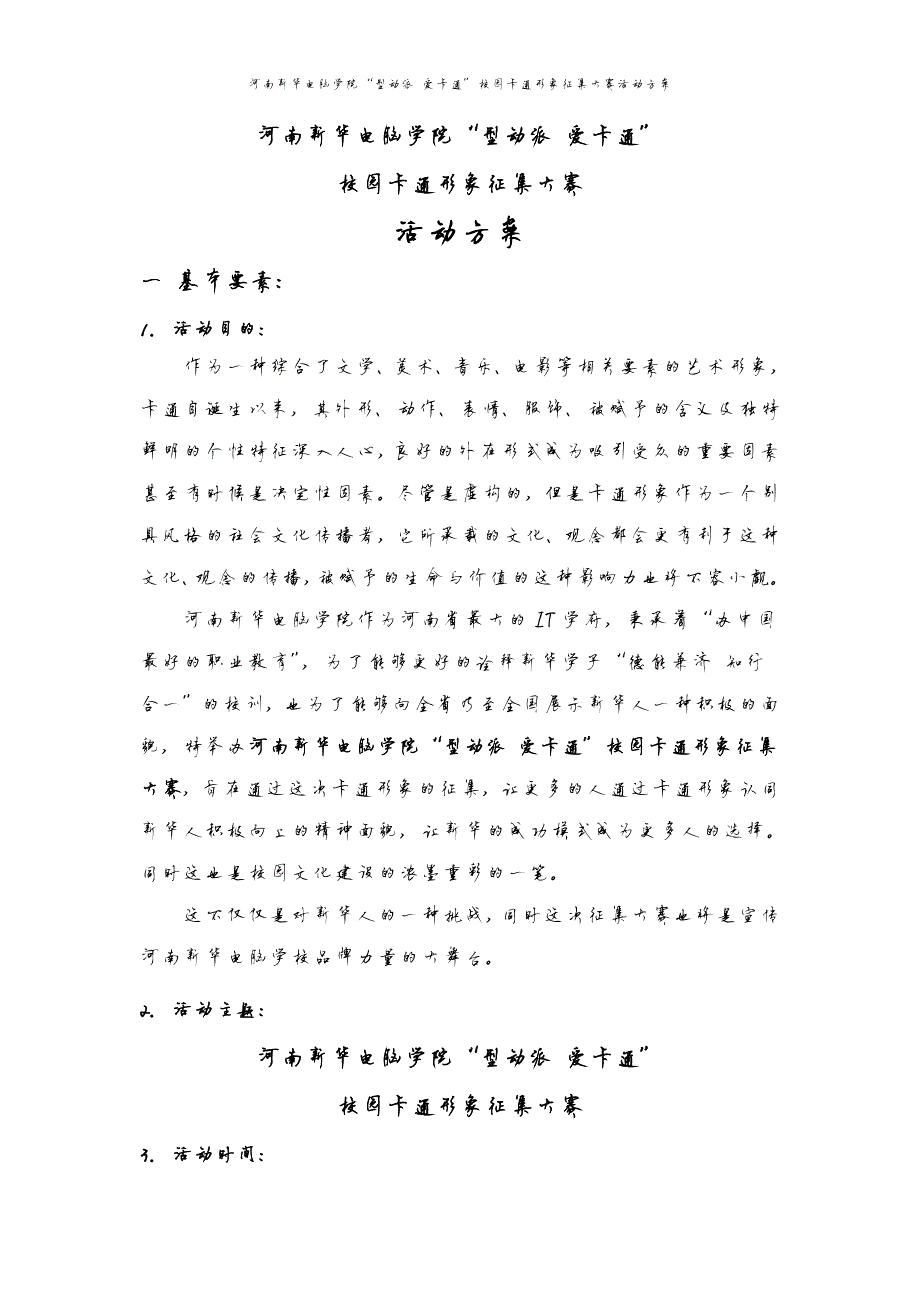 河南新华电脑学院“型动派 爱卡通”校园卡通形象征集大赛活动方案
河南新华电脑学院“型动派 爱卡通”
校园卡通形象征集大赛
活动方案
一 基本要素：
1. 活动目的：
作为一种综合了文学、美术、音乐、电影等相关要素的艺术形象，
卡通自诞生以来，其外形、动作、表情、服饰、被赋予的含义及独特
鲜明的个性特征深入人心，良好的外在形式成为吸引受众的重要因素
甚至有时候是决定性因素。尽管是虚构的，但是卡通形象作为一个别
具风格的社会文化传播者，它所承载的文化、观念都会更有利于这种
文化、观念的传播，被赋予的生命与价值的这种影响力也将不容小觑。
河南新华电脑学院作为河南省最大的IT学府，秉承着“办中国
最好的职业教育”，为了能够更好的诠释新华学子“德能兼济 知行
合一”的校训，也为了能够向全省乃至全国展示新华人一种积极的面
貌，特举办河南新华电脑学院“型动派 爱卡通”校园卡通形象征集
大赛，旨在通过这次卡通形象的征集，让更多的人通过卡通形象认同
新华人积极向上的精神面貌，让新华的成功模式成为更多人的选择。
同时这也是校园文化建设的浓墨重彩的一笔。
这不仅仅是对新华人的一种挑战，同时这次征集大赛也将是宣传
河南新华电脑学校品牌力量的大舞台。
2. 活动主题：
河南新华电脑学院“型动派 爱卡通”
校园卡通形象征集大赛
3. 活动时间：